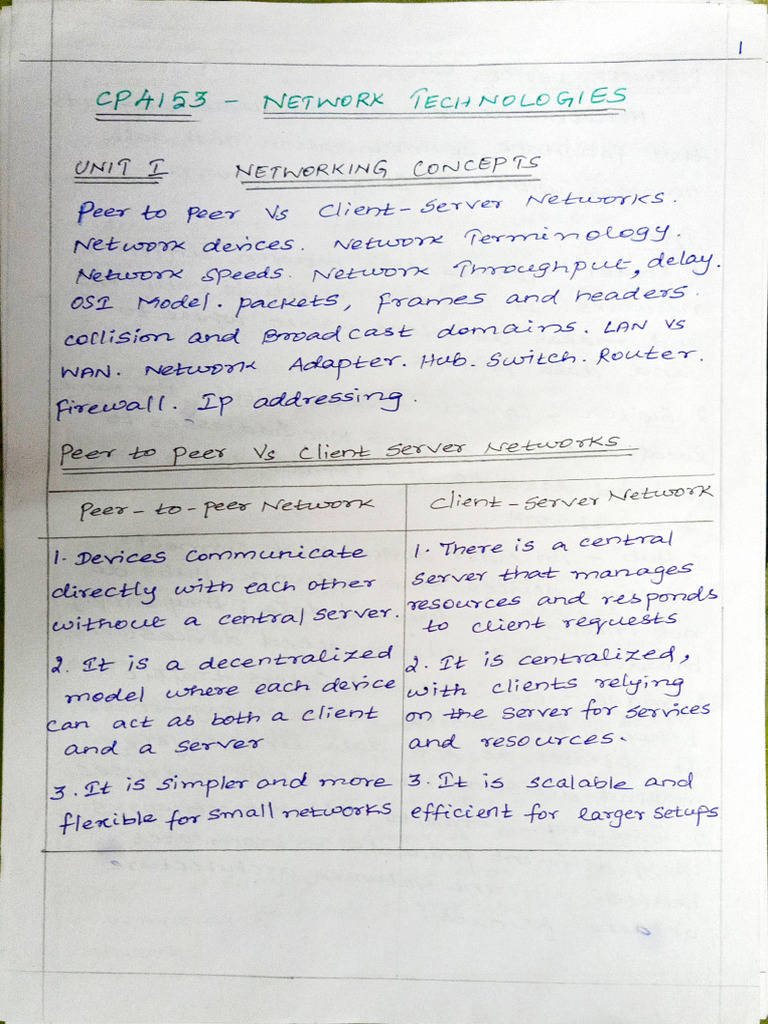 1
CP4153 - NETWORK TECHNOLOGIES
UNIT I NETWORKING CONCEPTS
Peer to Peer Vs Client-Server Networks.
Network devices. Network Terminology.
Network Speeds. Network Throughput, delay.
OSI Model. packets, frames and headers.
collision and Broadcast domains. LAN VS
WAN. Network Adapter. Hub. Switch. Router.
Firewall. Ip addressing.
Peer to peer Vs Client Server Networks.
Peer-to-peer Network
Client-Server Network
1. Devices communicate
directly with each other
without a central server.
1. There is a central
server that manages
resources and responds
to client requests
2. It is a decentralized
model where each device
can act as both a client
and a server
2. It is centralized,
with clients relying
on the server for services
and resources.
3. It is simpler and more
flexible for small networks
3. It is scalable and
efficient for larger setups